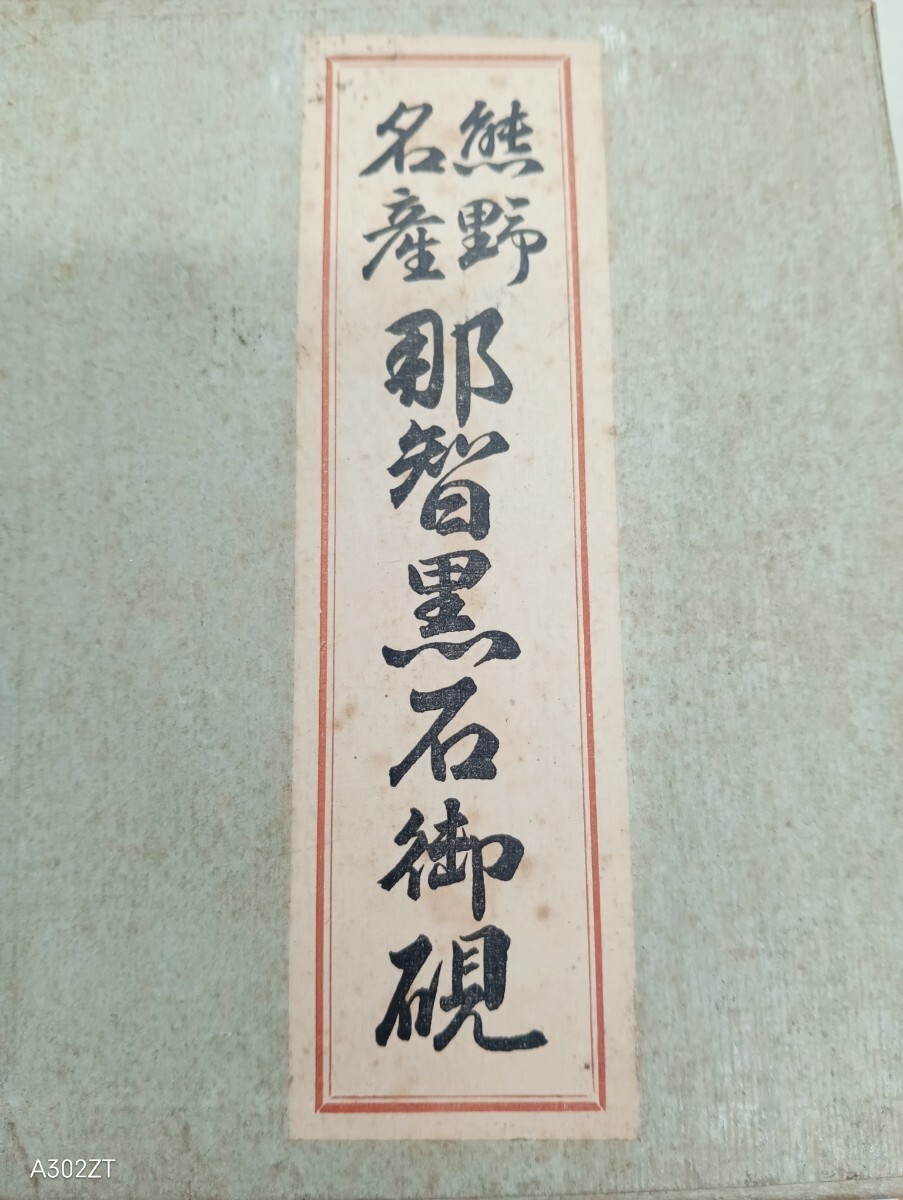 熊野
名産
那智黒石御硯
A302ZT